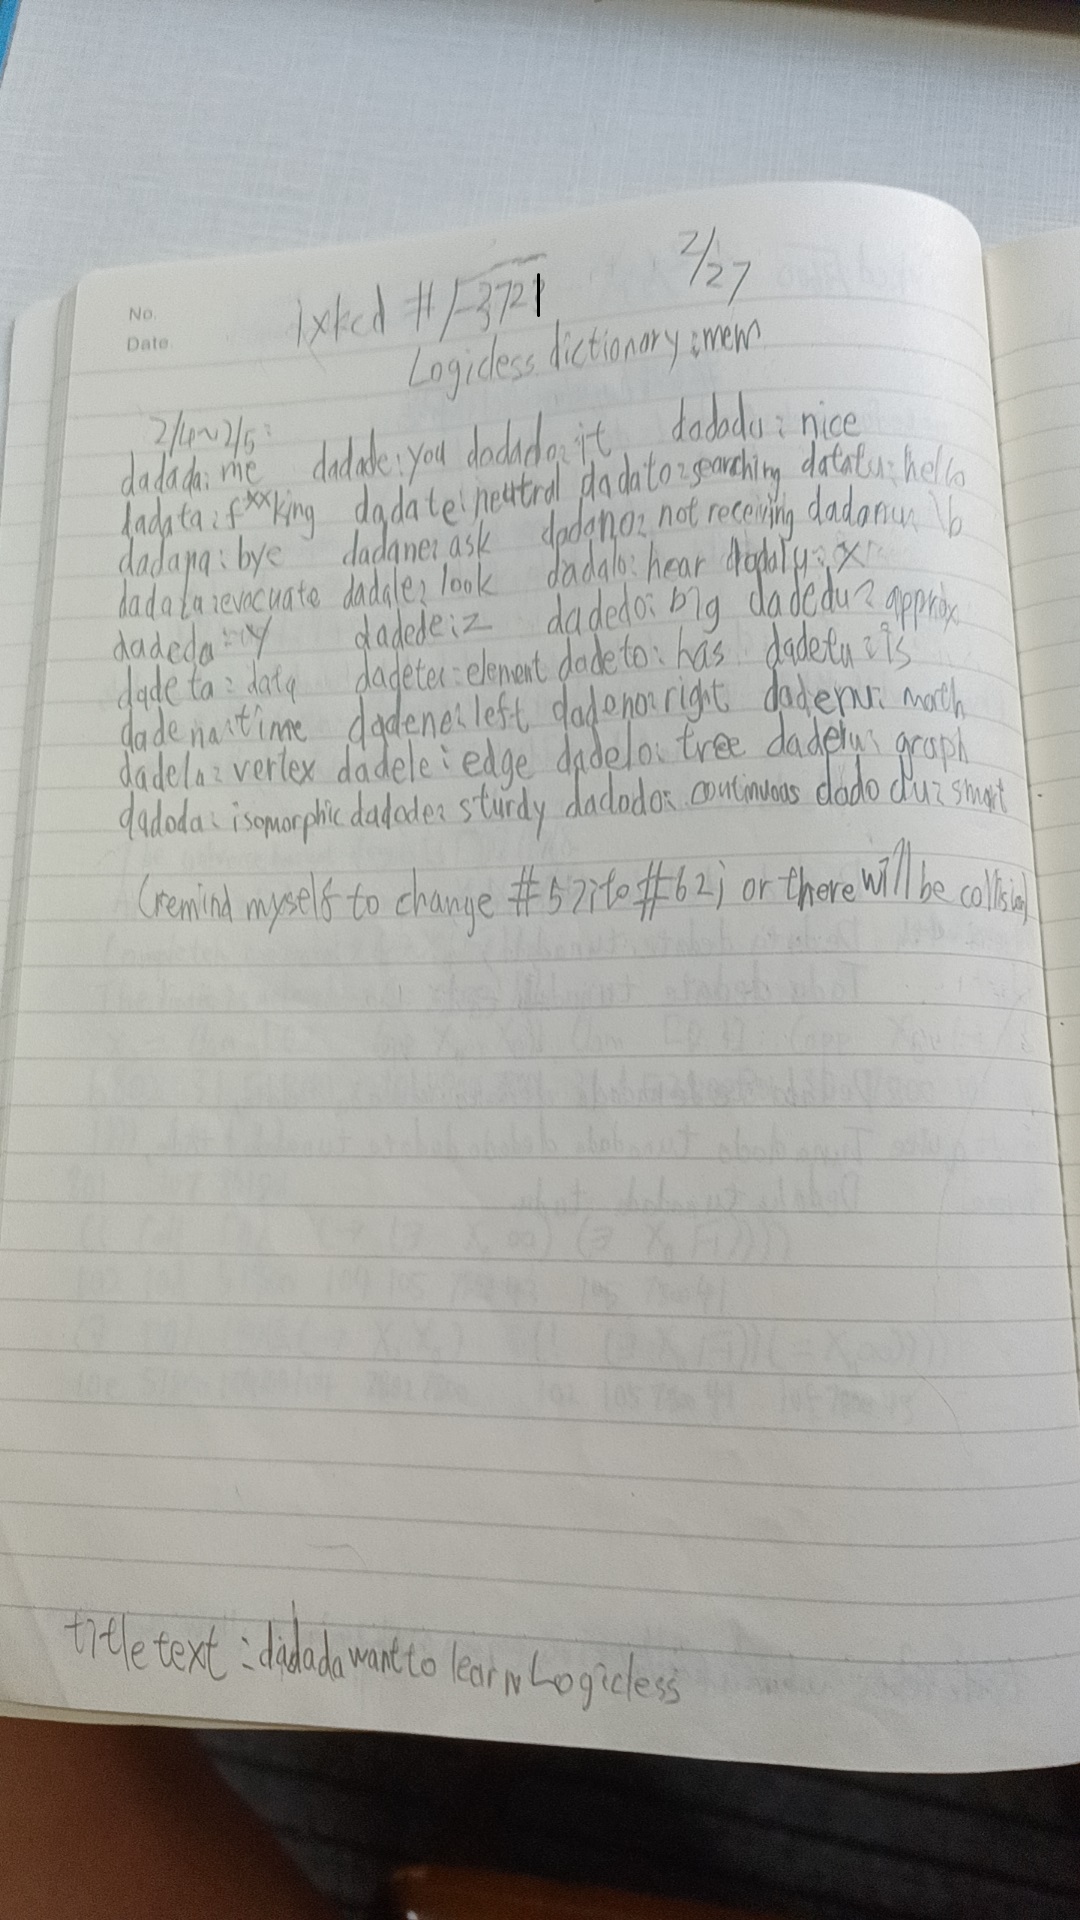 2/27
No.
1xkcd #√-3721
Date
Logicless dictionary:mem
2/4~2/5:
dadada: me dadade: you dadado: it dadadu: nice
dadata: f**king dadate: neutral dadato: searching datatu: hello
dadana: bye dadane: ask dadano: not receiving dadanu: \b
dadala: evacuate dadale: look dadalo: hear dadalu: x
dadeda: y dadede: z dadedo: big dadedu: approx
dadeta: data dadete: element dadeto: has dadetu: is
dadena: time dadene: left dadeno: right dadenu: math
dadela: vertex dadele: edge dadelo: tree dadelu: graph
dadoda: isomorphic dadode: sturdy dadodo: continuous dadodu: smart
(remind myself to change #57i to #62i or there will be collision)
title text: dadada want to learn Logicless